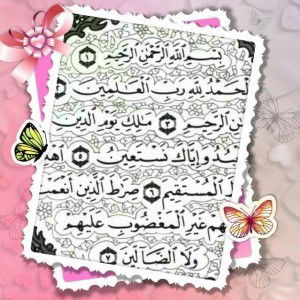 بِسْمِ ٱللَّهِ ٱلرَّحْمَٰنِ ٱلرَّحِيمِ ١
لْحَمْدُ لِلَّهِ رَبِّ ٱلْعَٰلَمِينَ
نِ ٱلرَّحِيمِ ٣ مَٰلِكِ يَوْمِ ٱلدِّينِ
بُدُ وَإِيَّاكَ نَسْتَعِينُ ٥ ٱهْدِ
ٱلْمُسْتَقِيمَ ٦ صِرَٰطَ ٱلَّذِينَ أَنْعَمْتَ
هِمْ غَيْرِ ٱلْمَغْضُوبِ عَلَيْهِمْ
وَلَا ٱلضَّآلِّينَ ٧